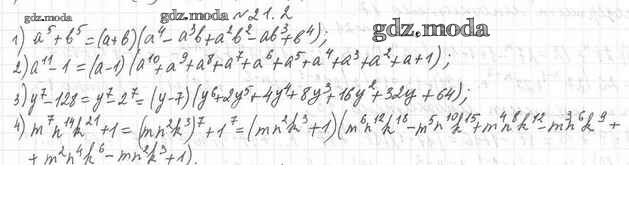 gdz.moda gdz.moda №21.2
gdz.moda
1) a⁵+b⁵=(a+b)(a⁴-a³b+a²b²-ab³+b⁴);
2) a¹¹-1=(a-1)(a¹⁰+a⁹+a⁸+a⁷+a⁶+a⁵+a⁴+a³+a²+a+1);
3) y⁷-128=y⁷-2⁷=(y-7)(y⁶+2y⁵+4y⁴+8y³+16y²+32y+64);
4) m⁷n¹⁴k²¹+1=(mn²k³)⁷+1⁷=(mn²k³+1)(m⁶n¹²k¹⁸-m⁵n¹⁰k¹⁵+m⁴n⁸k¹²-m³n⁶k⁹+
+m²n⁴k⁶-mn²k³+1).